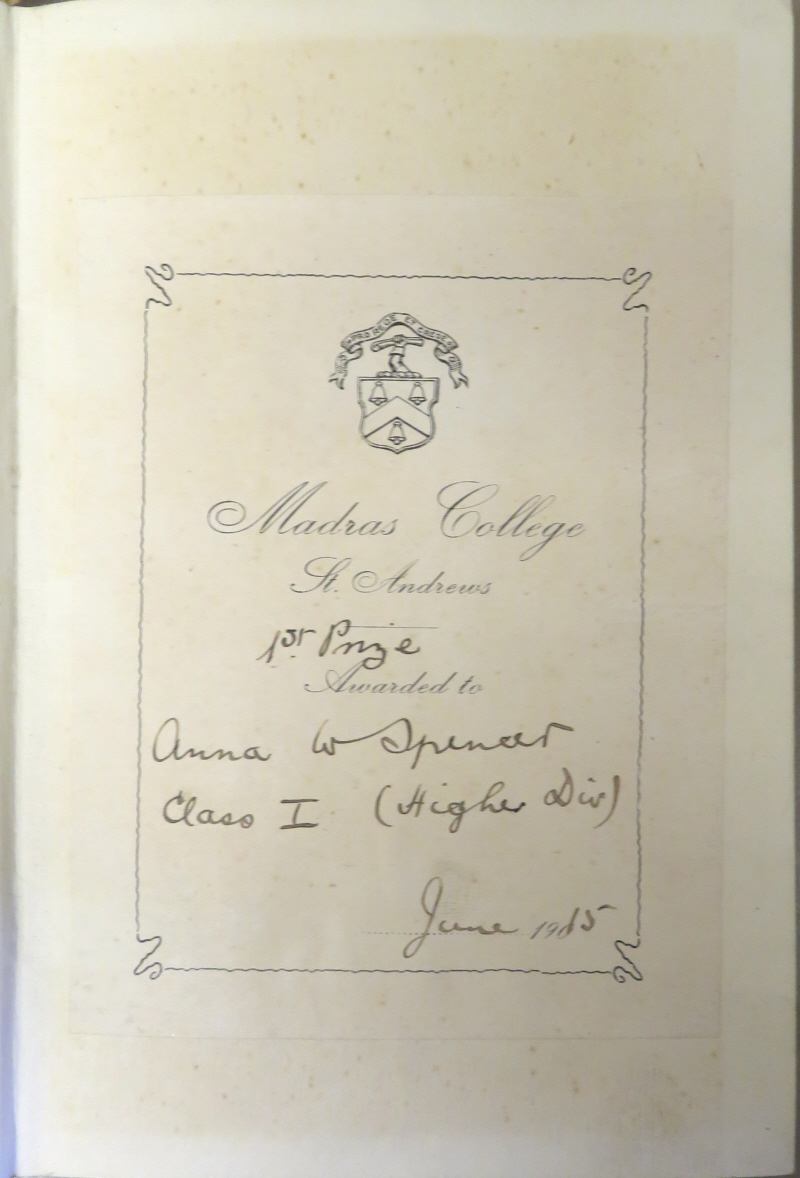 PRO REGE ET GREGE
Madras College
St. Andrews
1st Prize
Awarded to
Anna W Spencer
Class I (Higher Div)
June 1915